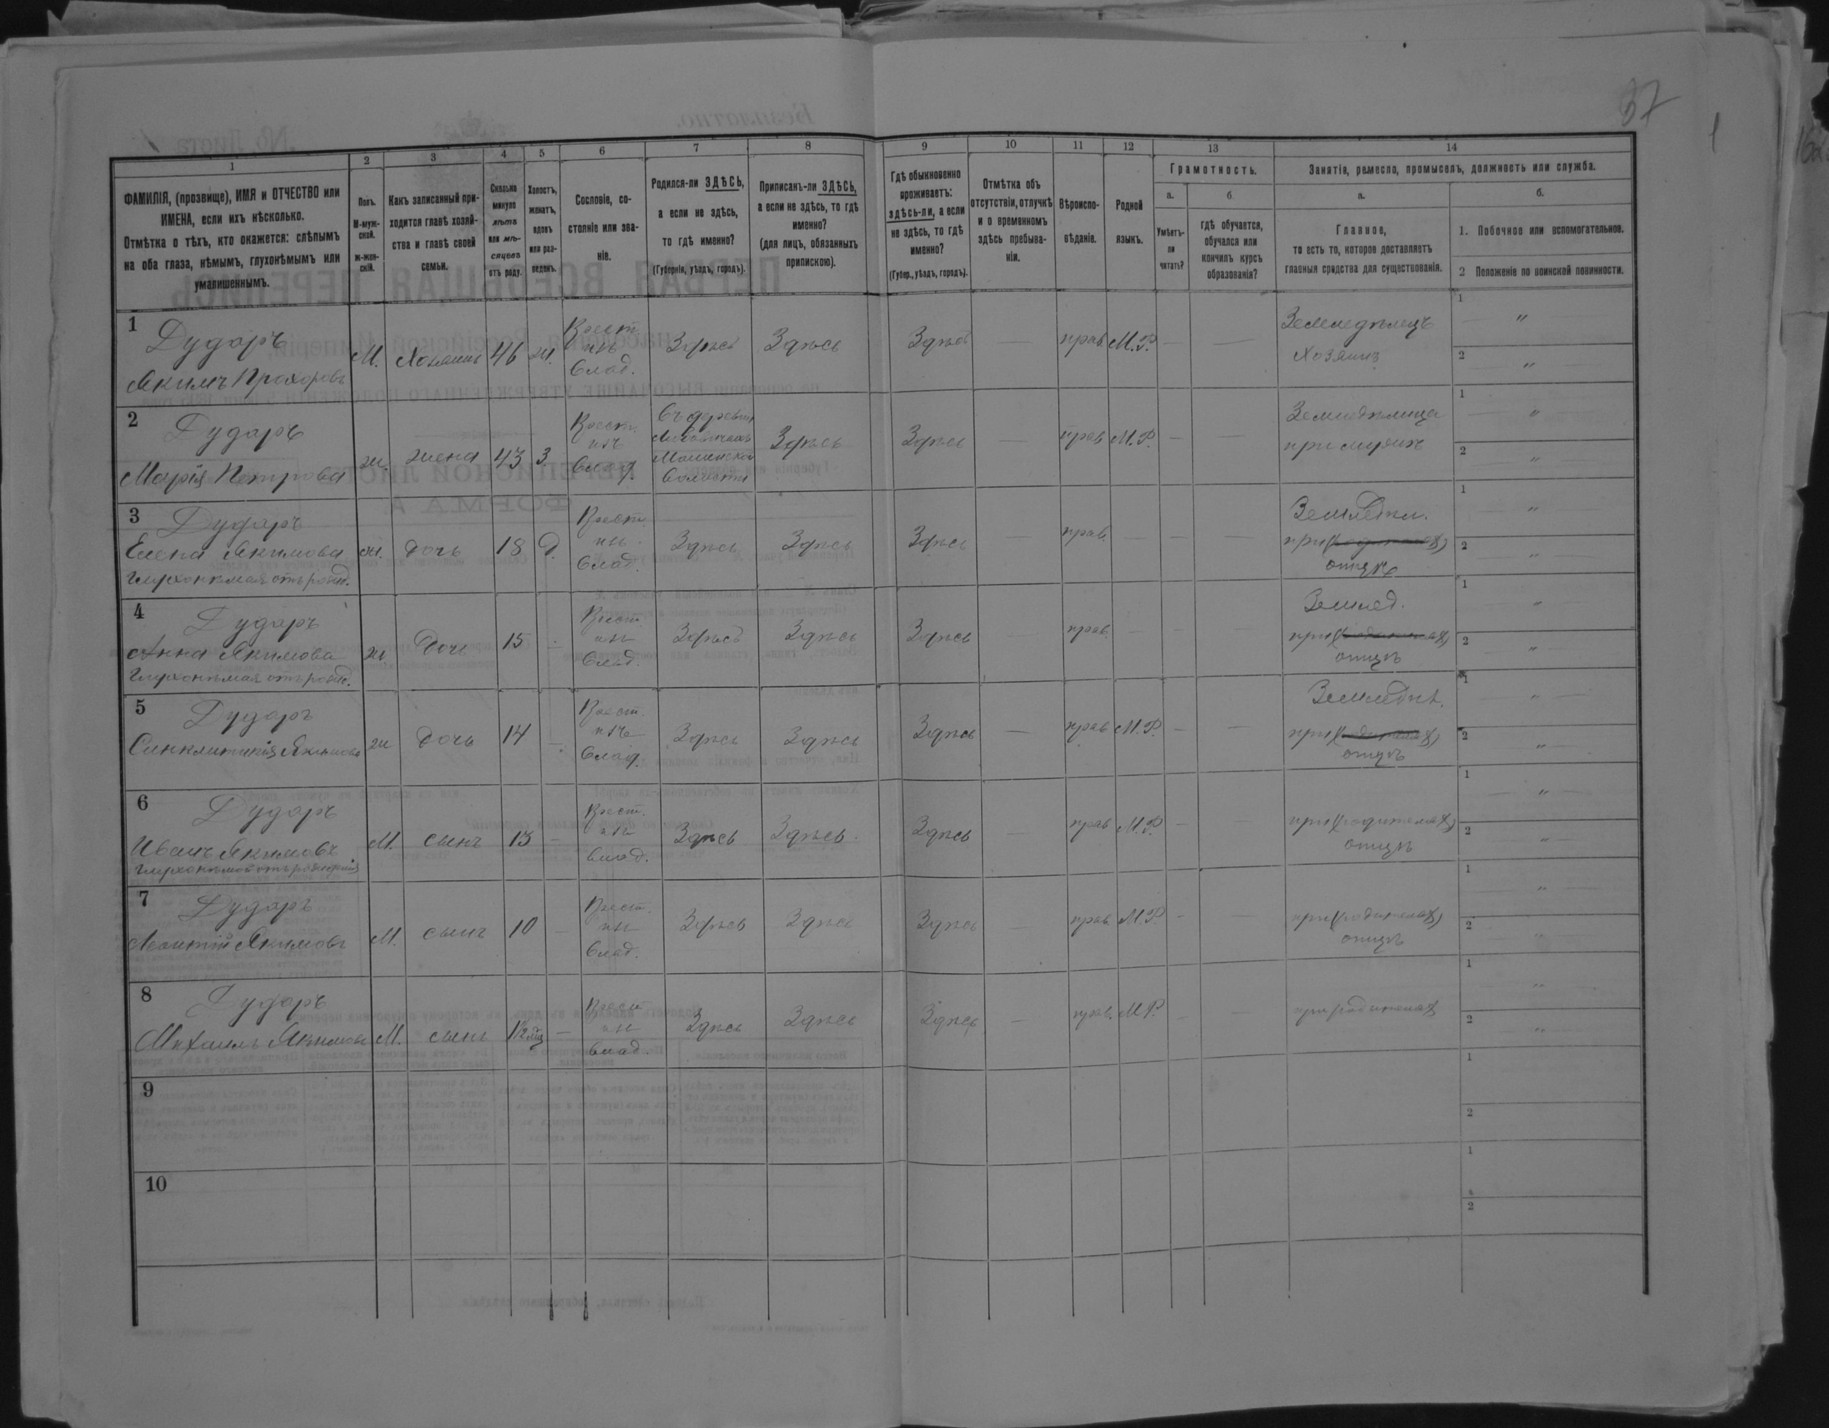 37
1 2 3 4 5 6 7 8 9 10 11 12 13 14
ФАМИЛІЯ, (прозвище), ИМЯ и ОТЧЕСТВО или
ИМЕНА, если ихъ нѣсколько.
Отмѣтка о тѣхъ, кто окажется: слѣпымъ
на оба глаза, нѣмымъ, глухонѣмымъ или
умалишеннымъ.
Полъ.
М-муж-
ской.
ж-жен-
скій.
Какъ записанный при-
ходится главѣ хозяй-
ства и главѣ своей
семьи.
Сколько
минуло
лѣтъ
или мѣ-
сяцевъ
отъ роду.
Холостъ,
женатъ,
вдовъ
или раз-
веденъ.
Сословіе, со-
стояніе или зва-
ніе.
Родился-ли ЗДѢСЬ,
а если не здѣсь,
то гдѣ именно?
(Губернія, уѣздъ, городъ).
Приписанъ-ли ЗДѢСЬ,
а если не здѣсь, то гдѣ
именно?
(для лицъ, обязанныхъ
припискою).
Гдѣ обыкновенно
проживаетъ:
здѣсь-ли, а если
не здѣсь, то гдѣ
именно?
(Губер., уѣздъ, городъ).
Отмѣтка объ
отсутствіи, отлучкѣ
и о временномъ
здѣсь пребыва-
ніи.
Вѣроиспо-
вѣданіе.
Родной
языкъ.
Грамотность.
а.
Умѣетъ-
ли
читать?
б.
гдѣ обучается,
обучался или
кончилъ курсъ
образованія?
Занятія, ремесло, промыселъ, должность или служба.
а.
Главное,
то есть то, которое доставляетъ
главныя средства для существованія.
б.
1. Побочное или вспомогательное.
2 Положеніе по воинской повинности.
1
Дударъ
Якимъ Прохоровъ
М. Хозяинъ 46 ж.
Крест.
изъ
влад.
Здѣсь Здѣсь Здѣсь — прав. М.Р. — —
Земледѣлецъ
хозяинъ
1 "
2 "
2
Дударъ
Марія Петрова
ж. жена 43 З.
Крест.
изъ
влад.
Въ деревнѣ
волости
Здѣсь Здѣсь — прав. М.Р. — —
Земледѣлица
при мужѣ
1 "
2 "
3
Дударъ
Елена Якимова
глухонѣмая отъ рожд.
ж. дочь 18 Д.
Крест.
изъ
влад.
Здѣсь Здѣсь Здѣсь — прав. — — —
Земледѣл.
при (родителях)
отцѣ
1 "
2 "
4
Дударъ
Анна Якимова
глухонѣмая отъ рожд.
ж дочь 15 —
Крест.
изъ
влад.
Здѣсь Здѣсь Здѣсь — прав. — — —
Землед.
при (родителях)
отцѣ
1 "
2 "
5
Дударъ
Синклитикія Якимова
ж дочь 14 —
Крест.
изъ
влад.
Здѣсь Здѣсь Здѣсь — прав. М.Р. — —
Земледѣл.
при (родителях)
отцѣ
1 "
2 "
6
Дударъ
Иванъ Якимовъ
глухонѣмой отъ рожденія
М. сынъ 13 —
Крест.
изъ
влад.
Здѣсь Здѣсь Здѣсь — прав. М.Р. — —
при (родителях)
отцѣ
1 "
2 "
7
Дударъ
Леонтій Якимовъ
М. сынъ 10 —
Крест.
изъ
влад.
Здѣсь Здѣсь Здѣсь — прав. М.Р. — —
при (родителях)
отцѣ
1 "
2 "
8
Дударъ
Михаилъ Якимовъ
М. сынъ —
Крест.
изъ
влад.
Здѣсь Здѣсь Здѣсь — прав. М.Р. — —
при родителях
1 "
2 "
9
1
2
10
1
2